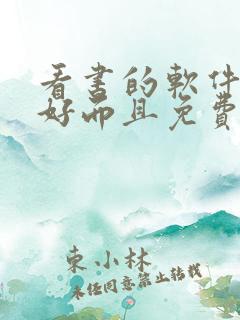 看書的軟件
好而且免費
東小林
未經同意禁止轉載